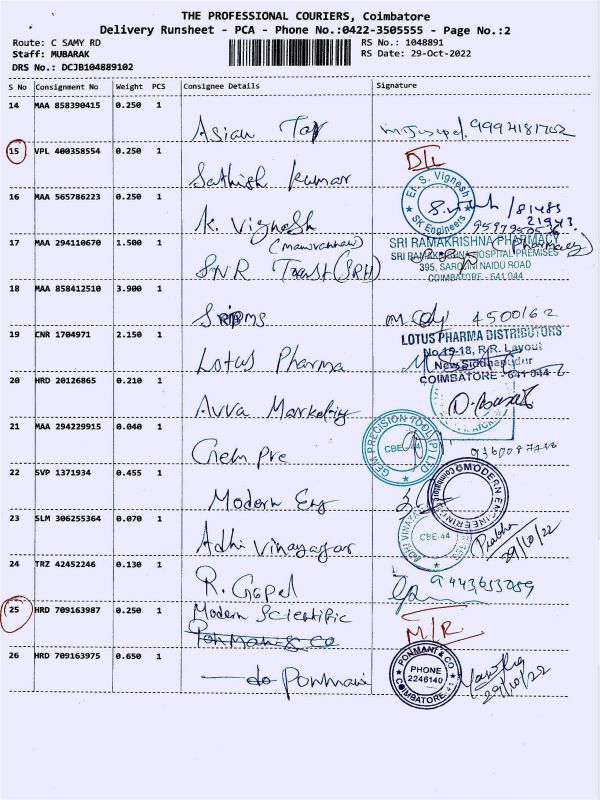 THE PROFESSIONAL COURIERS, Coimbatore
Delivery Runsheet - PCA - Phone No.:0422-3505555 - Page No.:2
Route: C SAMY RD
RS No.: 1048891
Staff: MUBARAK
RS Date: 29-Oct-2022
DRS No.: DCJB104889102
S No Consignment No Weight PCS Consignee Details Signature
14 MAA 858390415 0.250 1
Asian
15 VPL 400358554 0.250 1
Sathish Kumar D/L
16 MAA 565786223 0.250 1
K. Vignesh
Er. S. Vignesh
SK Engineers
/81483
21943
17 MAA 294110670 1.500 1
SNR Trust (SRH)
SRI RAMAKRISHNA PHARMACY
(Pharmacy)
SRI RAMAKRISHNA HOSPITAL PREMISES
395, SAROJINI NAIDU ROAD
COIMBATORE - 641 044
18 MAA 858412510 3.900 1
4500162
19 CNR 1704971 2.150 1
Lotus Pharma
LOTUS PHARMA DISTRIBUTORS
No.19-18, R.R. Layout
New Siddhapudur
COIMBATORE - 641 044
20 HRD 20126865 0.210 1
Avva Marketing
21 MAA 294229915 0.040 1
Gem Pre
GEM PRECISION TOOL(P) LTD
CBE-44
22 SVP 1371934 0.455 1
Modern Eng
MODERN ENGINEERING
23 SLM 306255364 0.070 1
Adhi Vinayagar
ADHI VINAYAGAR
CBE-44
Prabhu
29/10/22
24 TRZ 42452246 0.130 1
R. Gopal
9443653059
25 HRD 709163987 0.250 1
Modern Scientific
Ponmani & Co
M/R
26 HRD 709163975 0.650 1
do Ponmani
PONMANI & CO
PHONE
2246140
COIMBATORE-41
29/10/22